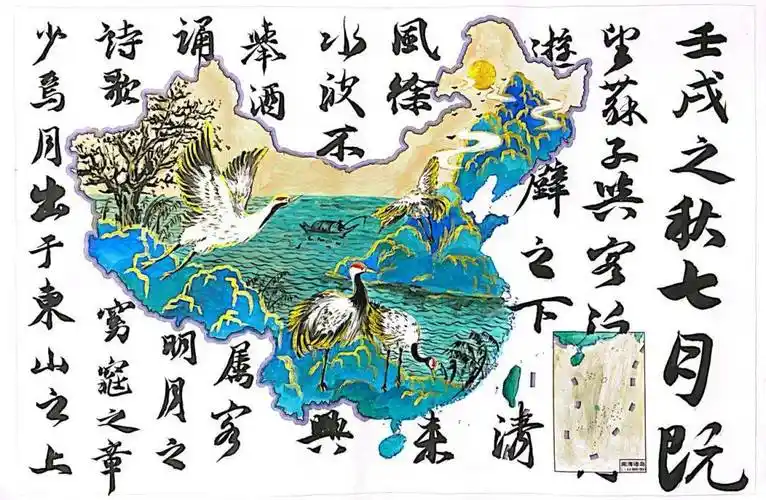 壬戌之秋七月既
望蘇子與客
遊壁之下清
風徐來
水波不興
舉酒属客
誦明月之
詩歌窈窕之章
少焉月出于東山之上
南海诸岛